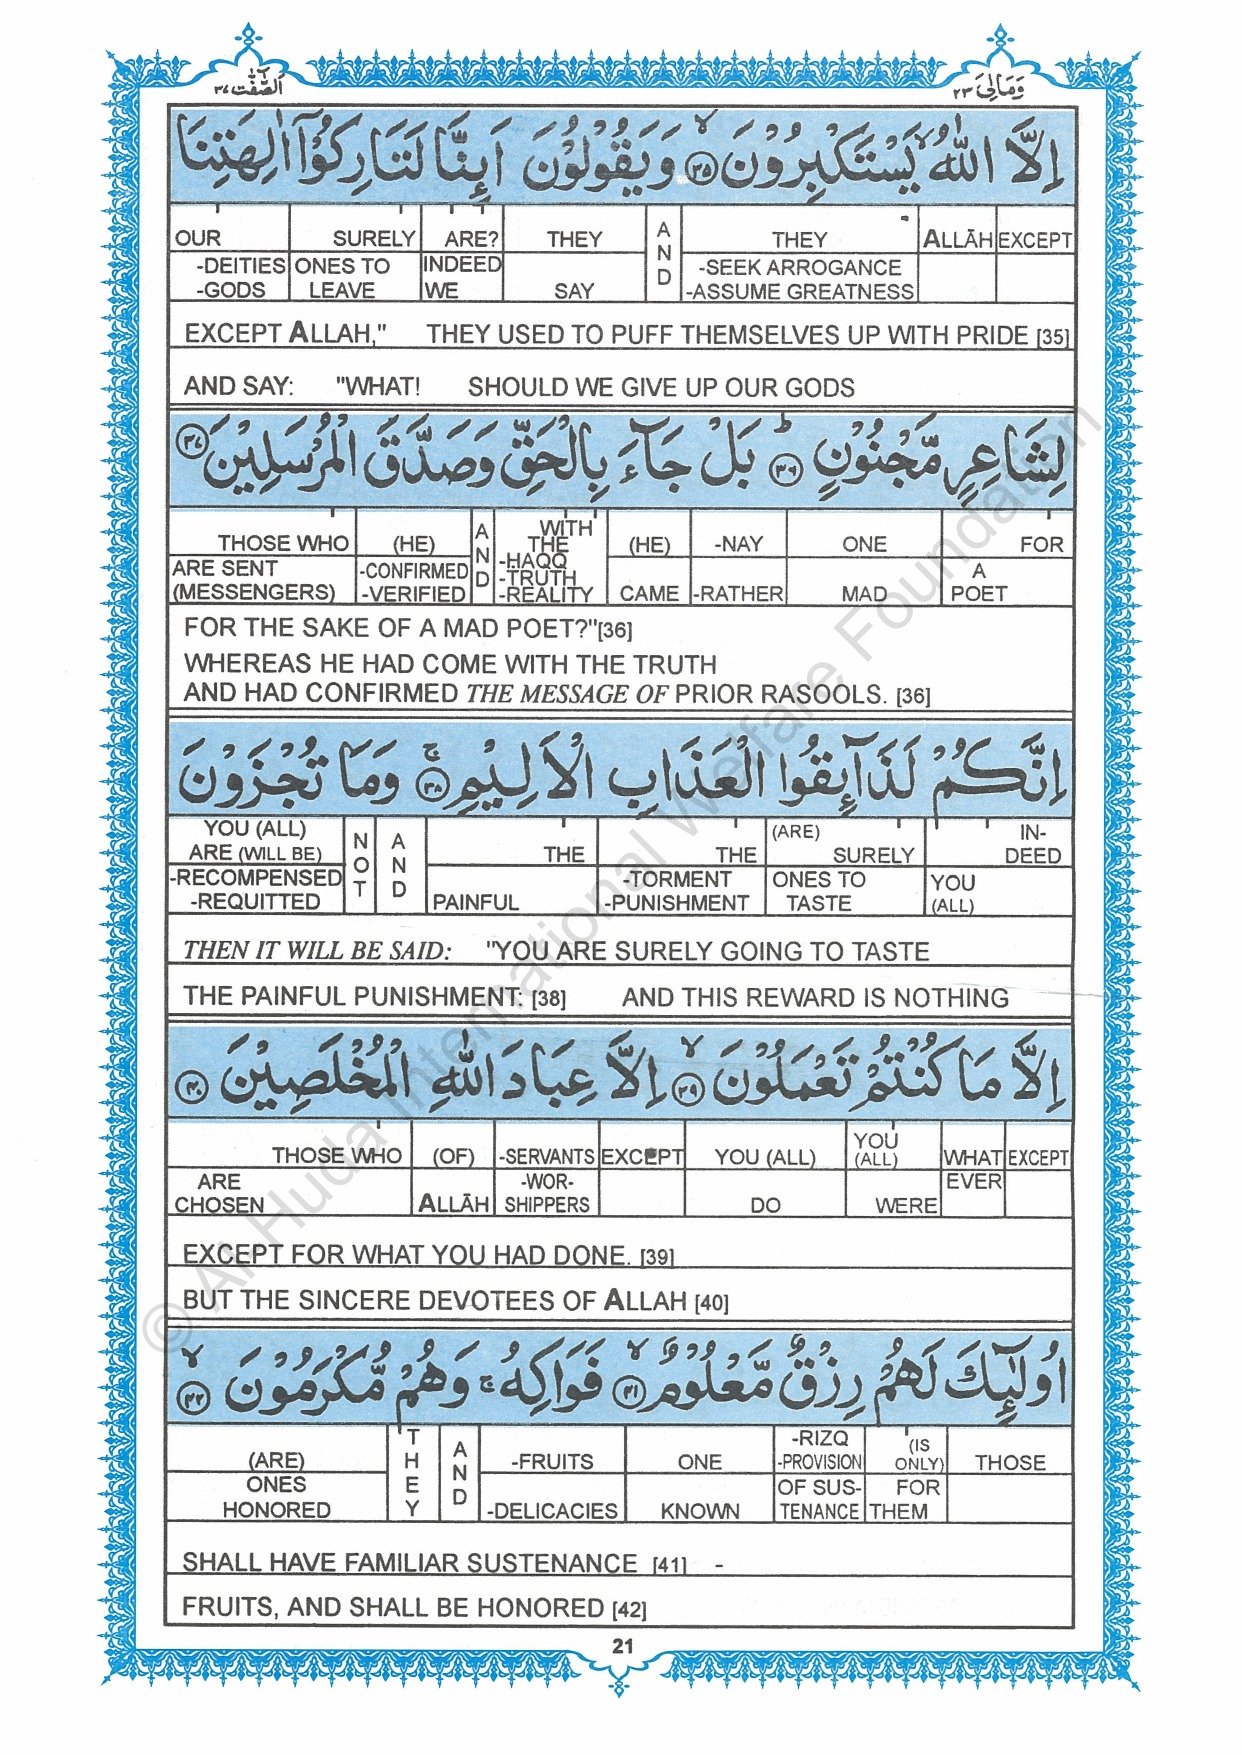 وَمَالِیَ ٢٣
اَلصّٰفّٰت ٣٧
اِلَّا اللّٰهُ یَسْتَكْبِرُوْنَ ﴿٣٥﴾ وَیَقُوْلُوْنَ اَئِنَّا لَتَارِكُوْۤا اٰلِهَتِنَا
OUR SURELY ARE? THEY AND THEY ALLĀH EXCEPT
-DEITIES ONES TO INDEED -SEEK ARROGANCE
-GODS LEAVE WE SAY -ASSUME GREATNESS
EXCEPT ALLAH," THEY USED TO PUFF THEMSELVES UP WITH PRIDE [35]
AND SAY: "WHAT! SHOULD WE GIVE UP OUR GODS
لِشَاعِرٍ مَّجْنُوْنٍ ﴿٣٦﴾ بَلْ جَآءَ بِالْحَقِّ وَصَدَّقَ الْمُرْسَلِیْنَ ﴿٣٧﴾
THOSE WHO (HE) AND WITH THE (HE) -NAY ONE FOR
ARE SENT -CONFIRMED -HAQQ -TRUTH A
(MESSENGERS) -VERIFIED -REALITY CAME -RATHER MAD POET
FOR THE SAKE OF A MAD POET?"[36]
WHEREAS HE HAD COME WITH THE TRUTH
AND HAD CONFIRMED THE MESSAGE OF PRIOR RASOOLS. [36]
اِنَّكُمْ لَذَآئِقُوا الْعَذَابِ الْاَلِیْمِ ۚ ﴿٣٨﴾ وَمَا تُجْزَوْنَ
YOU (ALL) NOT AND (ARE) IN-
ARE (WILL BE) THE THE SURELY DEED
-RECOMPENSED -TORMENT ONES TO YOU
-REQUITTED PAINFUL -PUNISHMENT TASTE (ALL)
THEN IT WILL BE SAID: "YOU ARE SURELY GOING TO TASTE
THE PAINFUL PUNISHMENT: [38] AND THIS REWARD IS NOTHING
اِلَّا مَا كُنْتُمْ تَعْمَلُوْنَ ﴿٣٩﴾ اِلَّا عِبَادَ اللّٰهِ الْمُخْلَصِیْنَ ﴿٤٠﴾
THOSE WHO (OF) -SERVANTS EXCEPT YOU (ALL) YOU (ALL) WHAT EXCEPT
ARE -WOR- EVER
CHOSEN ALLĀH SHIPPERS DO WERE
EXCEPT FOR WHAT YOU HAD DONE. [39]
BUT THE SINCERE DEVOTEES OF ALLAH [40]
اُولٰٓئِكَ لَهُمْ رِزْقٌ مَّعْلُوْمٌ ﴿٤١﴾ فَوَاكِهُ ۚ وَهُمْ مُّكْرَمُوْنَ ﴿٤٢﴾
(ARE) THEY AND -FRUITS ONE -RIZQ -PROVISION (IS ONLY) THOSE
ONES OF SUS- FOR
HONORED -DELICACIES KNOWN TENANCE THEM
SHALL HAVE FAMILIAR SUSTENANCE [41] -
FRUITS, AND SHALL BE HONORED [42]
21
© Al-Huda International Welfare Foundation